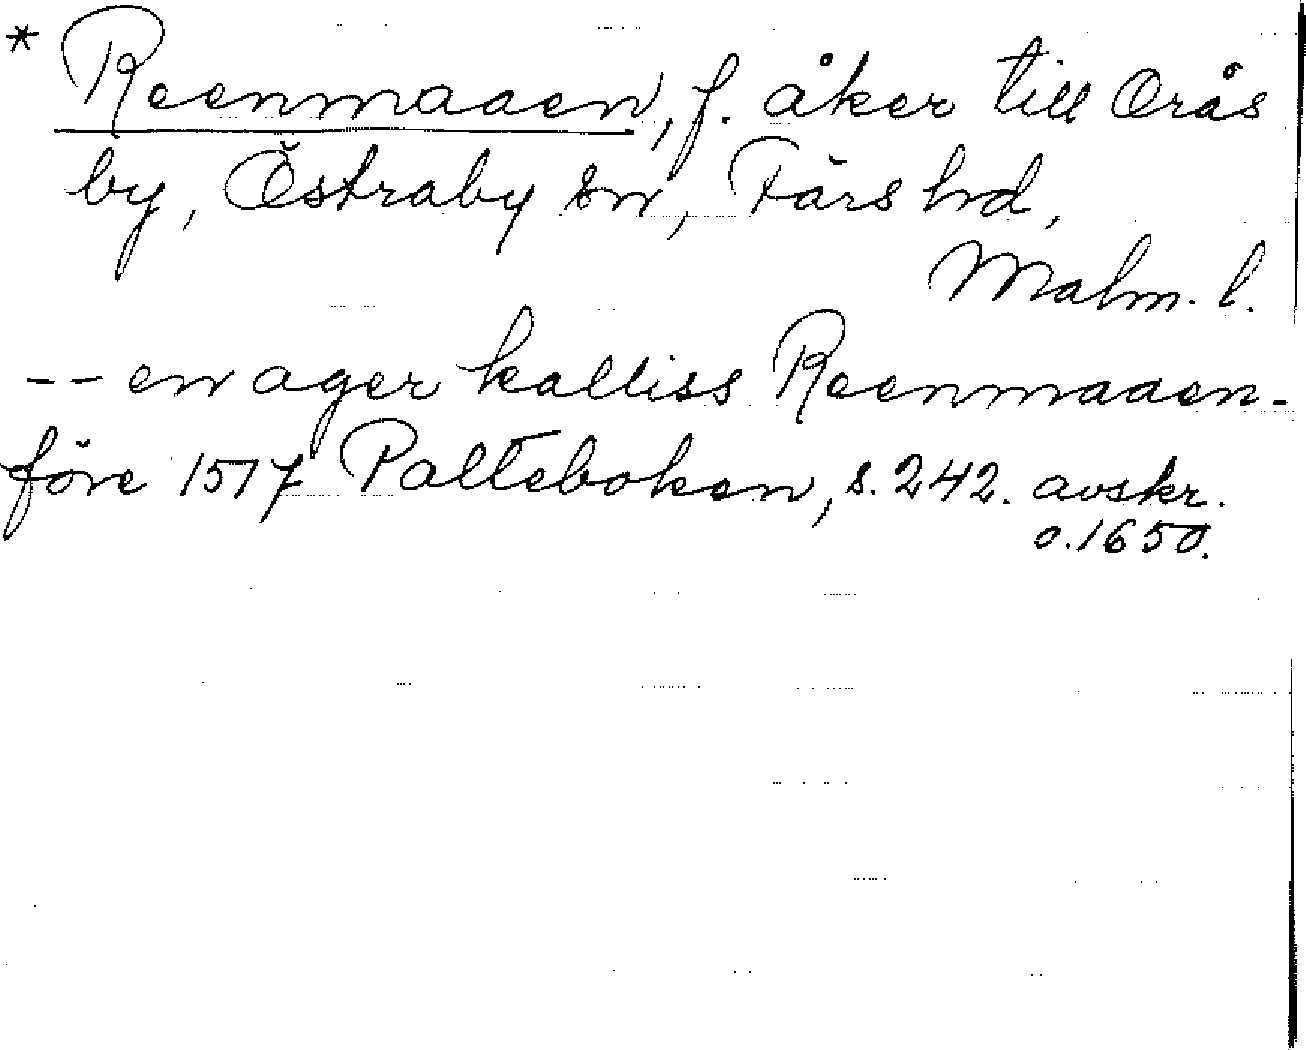 * Reenmaaen, f. åker till Orås
by, Östraby sn, Färs hd,
Malm. l.
-- en ager kalliss Reenmaaen-
före 1517 Palteboken, s. 242. avskr.
o. 1650.